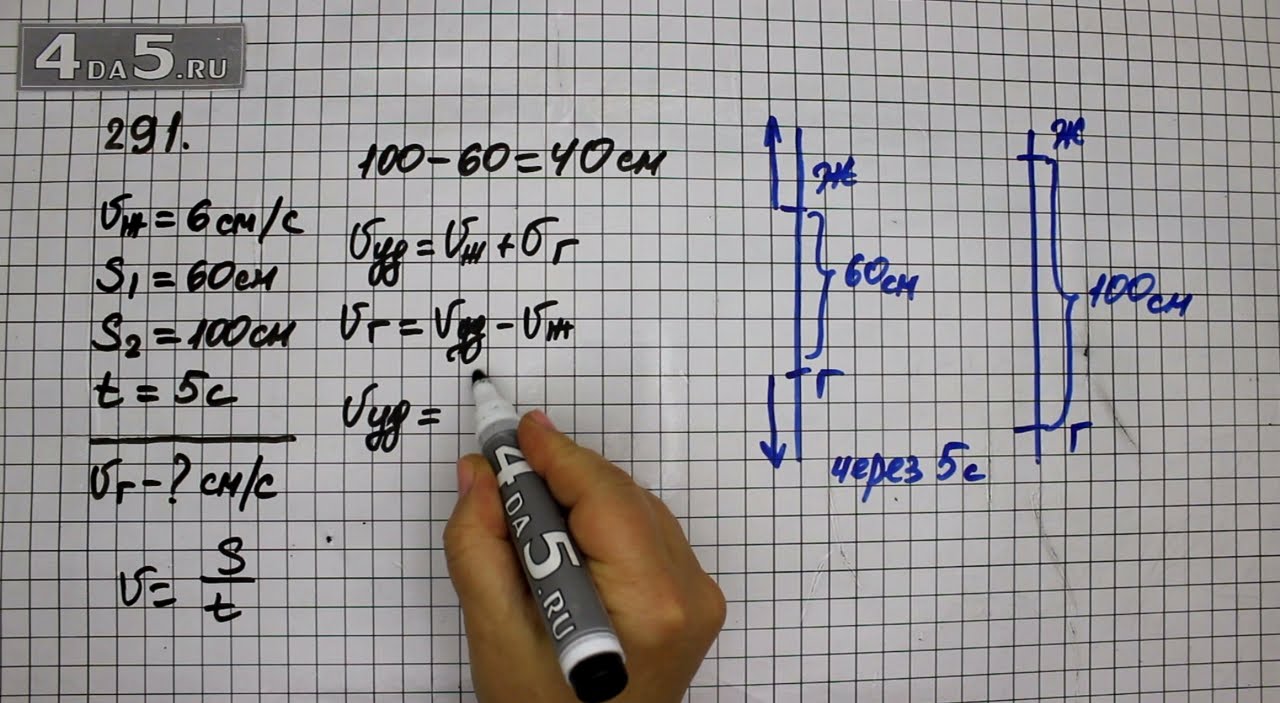 4DA5.RU
291.
Vж = 6 см/с
S₁ = 60 см
S₂ = 100 см
t = 5 с
Vг - ? см/с
V = S/t
100 - 60 = 40 см
Vуд = Vж + Vг
Vг = Vуд - Vж
Vуд =
4DA5.RU
ж
60 см
г
через 5 с
ж
100 см
г